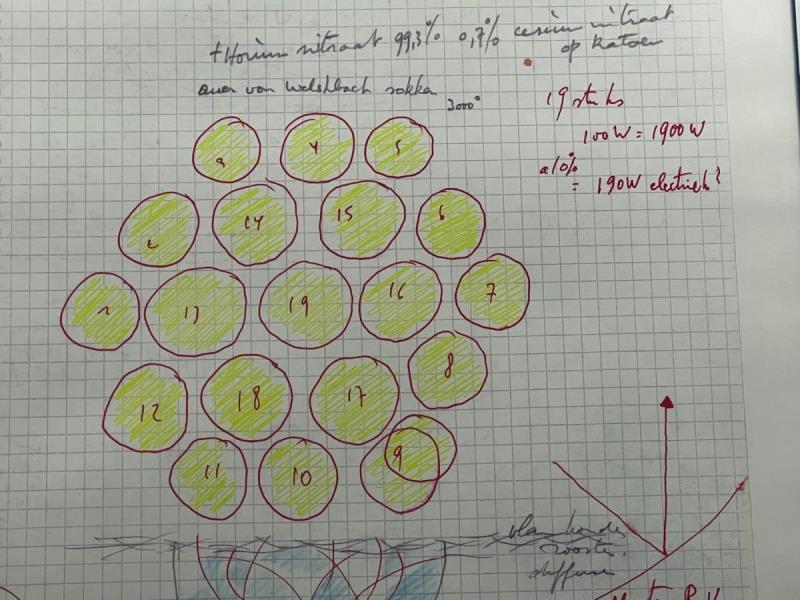 thorium nitraat 99,3% 0,7% cesium nitraat
op katoen
auer von welshbach sokken
3000°
19 stuks
100W = 1900W
a 10%
= 190W electrisch?
3 4 5
2 14 15 6
1 13 19 16 7
12 18 17 8
11 10 9
rooster
diffuus